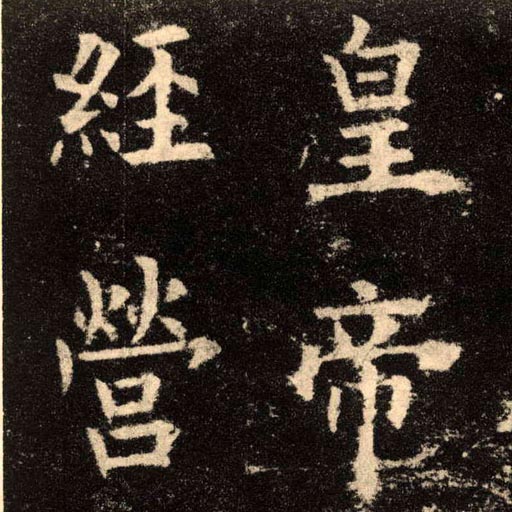 皇帝
經營